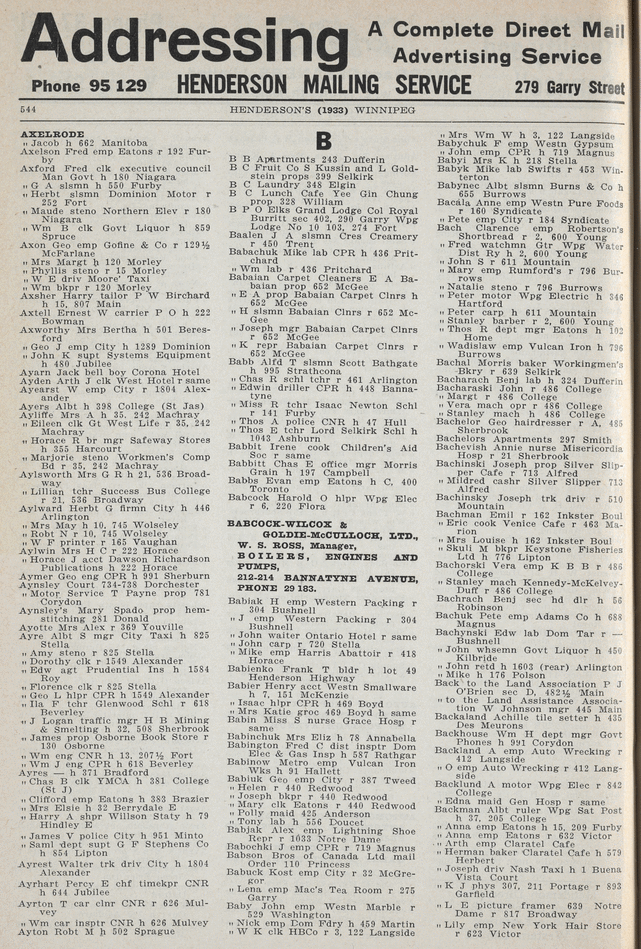 Addressing
A Complete Direct Mail
Advertising Service
Phone 95 129 HENDERSON MAILING SERVICE 279 Garry Street
544 HENDERSON'S (1933) WINNIPEG
AXELRODE
" Jacob h 662 Manitoba
Axelson Fred emp Eatons r 192 Fur-
by
Axford Fred clk executive council
Man Govt h 180 Niagara
" G A slsmn h 550 Furby
" Herbt slsmn Dominion Motor r
252 Fort
" Maude steno Northern Elev r 180
Niagara
" Wm B clk Govt Liquor h 859
Spruce
Axon Geo emp Gofine & Co r 129½
McFarlane
" Mrs Margt h 120 Morley
" Phyllis steno r 15 Morley
" W E driv Moore' Taxi
" Wm bkpr r 120 Morley
Axsher Harry tailor P W Birchard
h 15, 807 Main
Axtell Ernest W carrier P O h 222
Bowman
Axworthy Mrs Bertha h 501 Beres-
ford
" Geo J emp City h 1289 Dominion
" John K supt Systems Equipment
h 480 Jubilee
Ayarn Jack bell boy Corona Hotel
Ayden Arth J clk West Hotel r same
Ayearst W emp City r 1804 Alex-
ander
Ayers Albt h 398 College (St Jas)
Ayliffe Mrs A h 35, 242 Machray
" Eileen clk Gt West Life r 35, 242
Machray
" Horace R br mgr Safeway Stores
h 355 Harcourt
" Marjorie steno Workmen's Comp
Bd r 35, 242 Machray
Aylsworth Mrs G R h 21, 536 Broad-
way
" Lillian tchr Success Bus College
r 21, 536 Broadway
Aylward Herbt G firmn City h 446
Arlington
" Mrs May h 10, 745 Wolseley
" Robt N r 10, 745 Wolseley
" W F printer r 165 Vaughan
Aylwin Mrs H C r 222 Horace
" Horace J acct Dawson Richardson
Publications h 222 Horace
Aymer Geo eng CPR h 991 Sherburn
Aynsley Court 734-738 Dorchester
" Motor Service T Payne prop 781
Corydon
Aynsley's Mary Spado prop hem-
stitching 281 Donald
Ayotte Mrs Alex r 369 Youville
Ayre Albt S mgr City Taxi h 825
Stella
" Amy steno r 825 Stella
" Dorothy clk r 1549 Alexander
" Edw agt Prudential Ins h 1584
Roy
" Florence clk r 825 Stella
" Geo L hlpr CPR h 1549 Alexander
" Ila F tchr Glenwood Schl r 618
Beverley
" J Logan traffic mgr H B Mining
& Smelting h 32, 508 Sherbrook
" James prop Osborne Book Store r
130 Osborne
" Wm eng CNR h 13, 207½ Fort
" Wm J eng CPR h 618 Beverley
Ayres — h 371 Bradford
" Chas B clk YMCA h 381 College
(St J)
" Clifford emp Eatons h 383 Brazier
" Mrs Elsie h 32 Berrydale E
" Harry A shpr Willson Staty h 79
Hindley E
" James V police City h 951 Minto
" Saml dept supt G F Stephens Co
h 854 Lipton
Ayrest Walter trk driv City h 1804
Alexander
Ayrhart Percy E chf timekpr CNR
h 644 Jubilee
Ayrton T car clnr CNR r 626 Mul-
vey
" Wm car insptr CNR h 626 Mulvey
Ayton Robt M h 502 Sprague
B
B B Apartments 243 Dufferin
B C Fruit Co S Kussin and L Gold-
stein props 399 Selkirk
B C Laundry 348 Elgin
B C Lunch Cafe Yee Gin Chung
prop 328 William
B P O Elks Grand Lodge Col Royal
Burritt sec 402, 290 Garry Wpg
Lodge No 10 103, 274 Fort
Baalen J A slsmn Cres Creamery
r 450 Trent
Babachuk Mike lab CPR h 436 Prit-
chard
" Wm lab r 436 Pritchard
Babaian Carpet Cleaners E A Ba-
baian prop 652 McGee
" E A prop Babaian Carpet Clnrs h
652 McGee
" H slsmn Babaian Clnrs r 652 Mc-
Gee
" Joseph mgr Babaian Carpet Clnrs
r 652 McGee
" K repr Babaian Carpet Clnrs r
652 McGee
Babb Alfd T slsmn Scott Bathgate
h 995 Strathcona
" Chas R schl tchr r 461 Arlington
" Edwin driller CPR h 448 Banna-
tyne
" Miss R tchr Isaac Newton Schl
r 141 Furby
" Thos A police CNR h 47 Hull
" Thos E tchr Lord Selkirk Schl h
1043 Ashburn
Babbit Irene cook Children's Aid
Soc r same
Babbitt Chas E office mgr Morris
Grain h 197 Campbell
Babbs Evan emp Eatons h C, 400
Toronto
Babcock Harold O hlpr Wpg Elec
r 6, 220 Flora
BABCOCK-WILCOX &
GOLDIE-McCULLOCH, LTD.,
W. S. ROSS, Manager,
BOILERS, ENGINES AND
PUMPS,
212-214 BANNATYNE AVENUE,
PHONE 29 183.
Babiak H emp Western Packing r
304 Bushnell
" J emp Western Packing r 304
Bushnell
" John waiter Ontario Hotel r same
" John carp r 720 Stella
" Mike emp Harris Abattoir r 418
Horace
Babienko Frank T bldr h lot 49
Henderson Highway
Babier Henry acct Westn Smallware
h 7, 151 McKenzie
" Isaac hlpr CPR h 469 Boyd
" Mrs Katie groc 469 Boyd h same
Babin Miss S nurse Grace Hosp r
same
Babinchuk Mrs Eliz h 78 Annabella
Babington Fred C dist insptr Dom
Elec & Gas Insp h 587 Rathgar
Babinow Metro emp Vulcan Iron
Wks h 91 Hallett
Babiuk Geo emp City r 387 Tweed
" Helen r 440 Redwood
" Joseph bkpr r 440 Redwood
" Mary clk Eatons r 440 Redwood
" Polly maid 425 Anderson
" Tony lab h 556 Doucet
Babjak Alex emp Lightning Shoe
Repr r 1033 Notre Dame
Babochki J emp CPR r 719 Magnus
Babson Bros of Canada Ltd mail
Order 110 Princess
Babuck Kost emp City r 32 McGre-
gor
" Lena emp Mac's Tea Room r 275
Garry
Baby John emp Westn Marble r
529 Washington
" Nick emp Dom Fdry h 459 Martin
" W K clk HBCo r 3, 122 Langside
" Mrs Wm W h 3, 122 Langside
Babychuk F emp Westn Gypsum
" John emp CPR h 719 Magnus
Babyi Mrs K h 218 Stella
Babyk Mike lab Swifts r 453 Win-
terton
Babynec Albt slsmn Burns & Co h
655 Burrows
Bacala Anne emp Westn Pure Foods
r 160 Syndicate
" Pete emp City r 184 Syndicate
Bach Clarence emp Robertson's
Shortbread r 2, 600 Young
" Fred watchmn Gtr Wpg Water
Dist Ry h 2, 600 Young
" John S r 611 Mountain
" Mary emp Rumford's r 796 Bur-
rows
" Natalie steno r 796 Burrows
" Peter motor Wpg Electric h 346
Hartford
" Peter carp h 611 Mountain
" Stanley barber r 2, 600 Young
" Thos R dept mgr Eatons h 102
Home
" Wadislaw emp Vulcan Iron h 796
Burrows
Bachal Morris baker Workingmen's
Bkry r 639 Selkirk
Bacharach Benj lab h 324 Dufferin
Bacharaski John r 486 College
" Margt r 486 College
" Vera mach opr r 486 College
" Stanley mach h 486 College
Bachelor Geo hairdresser r A, 485
Sherbrook
Bachelors Apartments 297 Smith
Bachevish Annie nurse Misericordia
Hosp r 21 Sherbrook
Bachinski Joseph prop Silver Slip-
per Cafe r 713 Alfred
" Mildred cashr Silver Slipper 713
Alfred
Bachinsky Joseph trk driv r 510
Mountain
Bachman Emil r 162 Inkster Boul
" Eric cook Venice Cafe r 463 Ma-
rion
" Mrs Louise h 162 Inkster Boul
" Skuli M bkpr Keystone Fisheries
Ltd h 776 Lipton
Bachorski Vera emp K B B r 486
College
" Stanley mach Kennedy-McKelvey-
Duff r 486 College
Bachrach Benj sec hd dlr h 56
Robinson
Bachuk Pete emp Adams Co h 688
Magnus
Bachynski Edw lab Dom Tar r —
Bushnell
" John whsemn Govt Liquor h 450
Kilbride
" John retd h 1603 (rear) Arlington
" Mike h 176 Polson
Back to the Land Association P J
O'Brien sec D, 482½ Main
" to the Land Assistance Associa-
tion W Johnson mgr 445 Main
Backaland Achille tile setter h 435
Des Meurons
Backhouse Wm H dept mgr Govt
Phones h 991 Corydon
Backland A emp Auto Wrecking r
412 Langside
" O emp Auto Wrecking r 412 Lang-
side
Backlund A motor Wpg Elec r 842
College
" Edna maid Gen Hosp r same
Backman Albt ruler Wpg Sat Post
h 37, 205 College
" Anna emp Eatons h 15, 209 Furby
" Anna emp Eatons r 632 Victor
" Arth emp Claratel Cafe
" Herman baker Claratel Cafe h 579
Herbert
" Joseph driv Nash Taxi h 1 Buena
Vista Court
" K J phys 307, 211 Portage r 893
Garfield
" L E picture framer 639 Notre
Dame r 817 Broadway
" Lily emp New York Hair Store
r 623 Victor